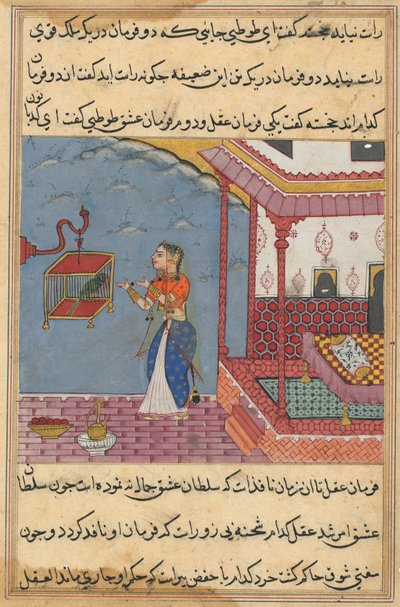 راست نیاید خجسته گفت ای طوطی جایی که دو فرمان در یک ملک قوی
راست نیاید دو فرمان در یک تن این ضعیفه چگونه راست اید گفت ان دو فرمان
کدام اند خجسته گفت یکی فرمان عقل و دوم فرمان عشق طوطی گفت ای کدبانو
فرمان عقل تا ان زمان نافذ است که سلطان عشق جمال نه نموده است چون سلطان
عشق امر شد عقل کدام شحنه بی زور است که فرمان او نافذ کردد و چون
مفتی شوق حاکم کشت خرد کدام است که حکم او جاری ماند العقل